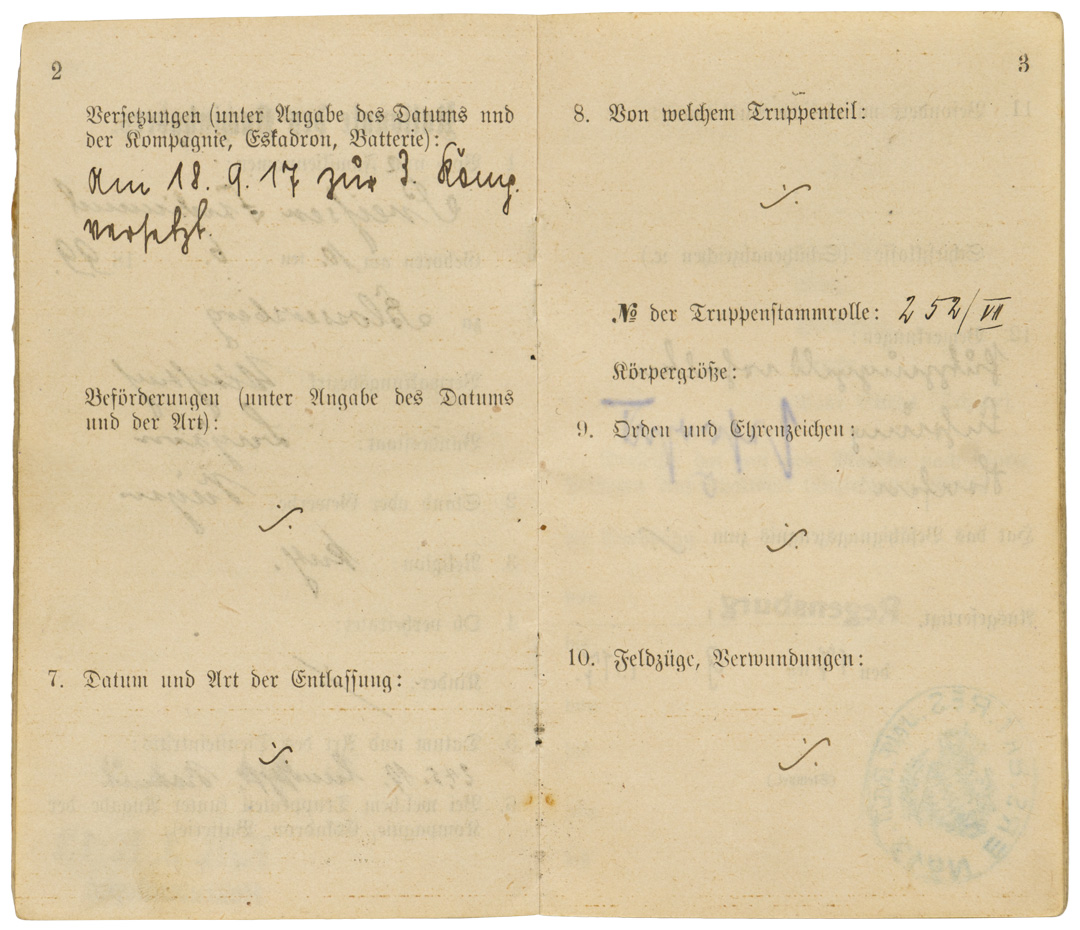 2
Versetzungen (unter Angabe des Datums und
der Kompagnie, Eskadron, Batterie):
Am 18. 9. 17 zur 3. Komp.
versetzt.
Beförderungen (unter Angabe des Datums
und der Art):
7. Datum und Art der Entlassung:
3
8. Von welchem Truppenteil:
№ der Truppenstammrolle: 252/VII
Körpergröße:
9. Orden und Ehrenzeichen:
10. Feldzüge, Verwundungen: